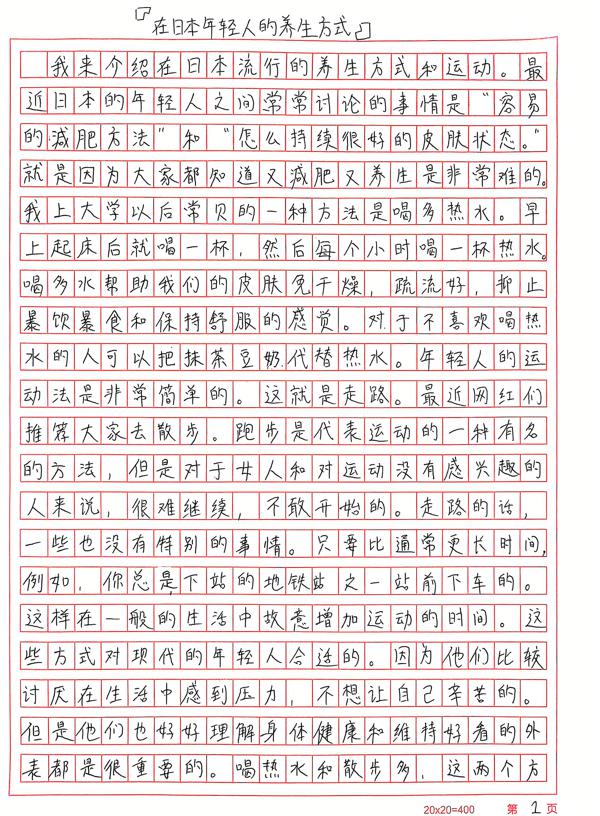 『在日本年轻人的养生方式』
我来介绍在日本流行的养生方式和运动。最
近日本的年轻人之间常常讨论的事情是“容易
的减肥方法”和“怎么持续很好的皮肤状态。”
就是因为大家都知道又减肥又养生是非常难的。
我上大学以后常贝的一种方法是喝多热水。早
上起床后就喝一杯，然后每个小时喝一杯热水。
喝多水帮助我们的皮肤免干燥，疏流好，抑止
暴饮暴食和保持舒服的感觉。对于不喜欢喝热
水的人可以把抹茶豆奶代替热水。年轻人的运
动法是非常简单的。这就是走路。最近网红们
推荐大家去散步。跑步是代表运动的一种有名
的方法，但是对于女人和对运动没有感兴趣的
人来说，很难继续，不敢开始的。走路的话，
一些也没有特别的事情。只要比通常更长时间，
例如，你总是下站的地铁站之一站前下车的。
这样在一般的生活中故意增加运动的时间。这
些方式对现代的年轻人合适的。因为他们比较
讨厌在生活中感到压力，不想让自己辛苦的。
但是他们也好好理解身体健康和维持好看的外
表都是很重要的。喝热水和散步多，这两个方
20x20=400 第 1 页